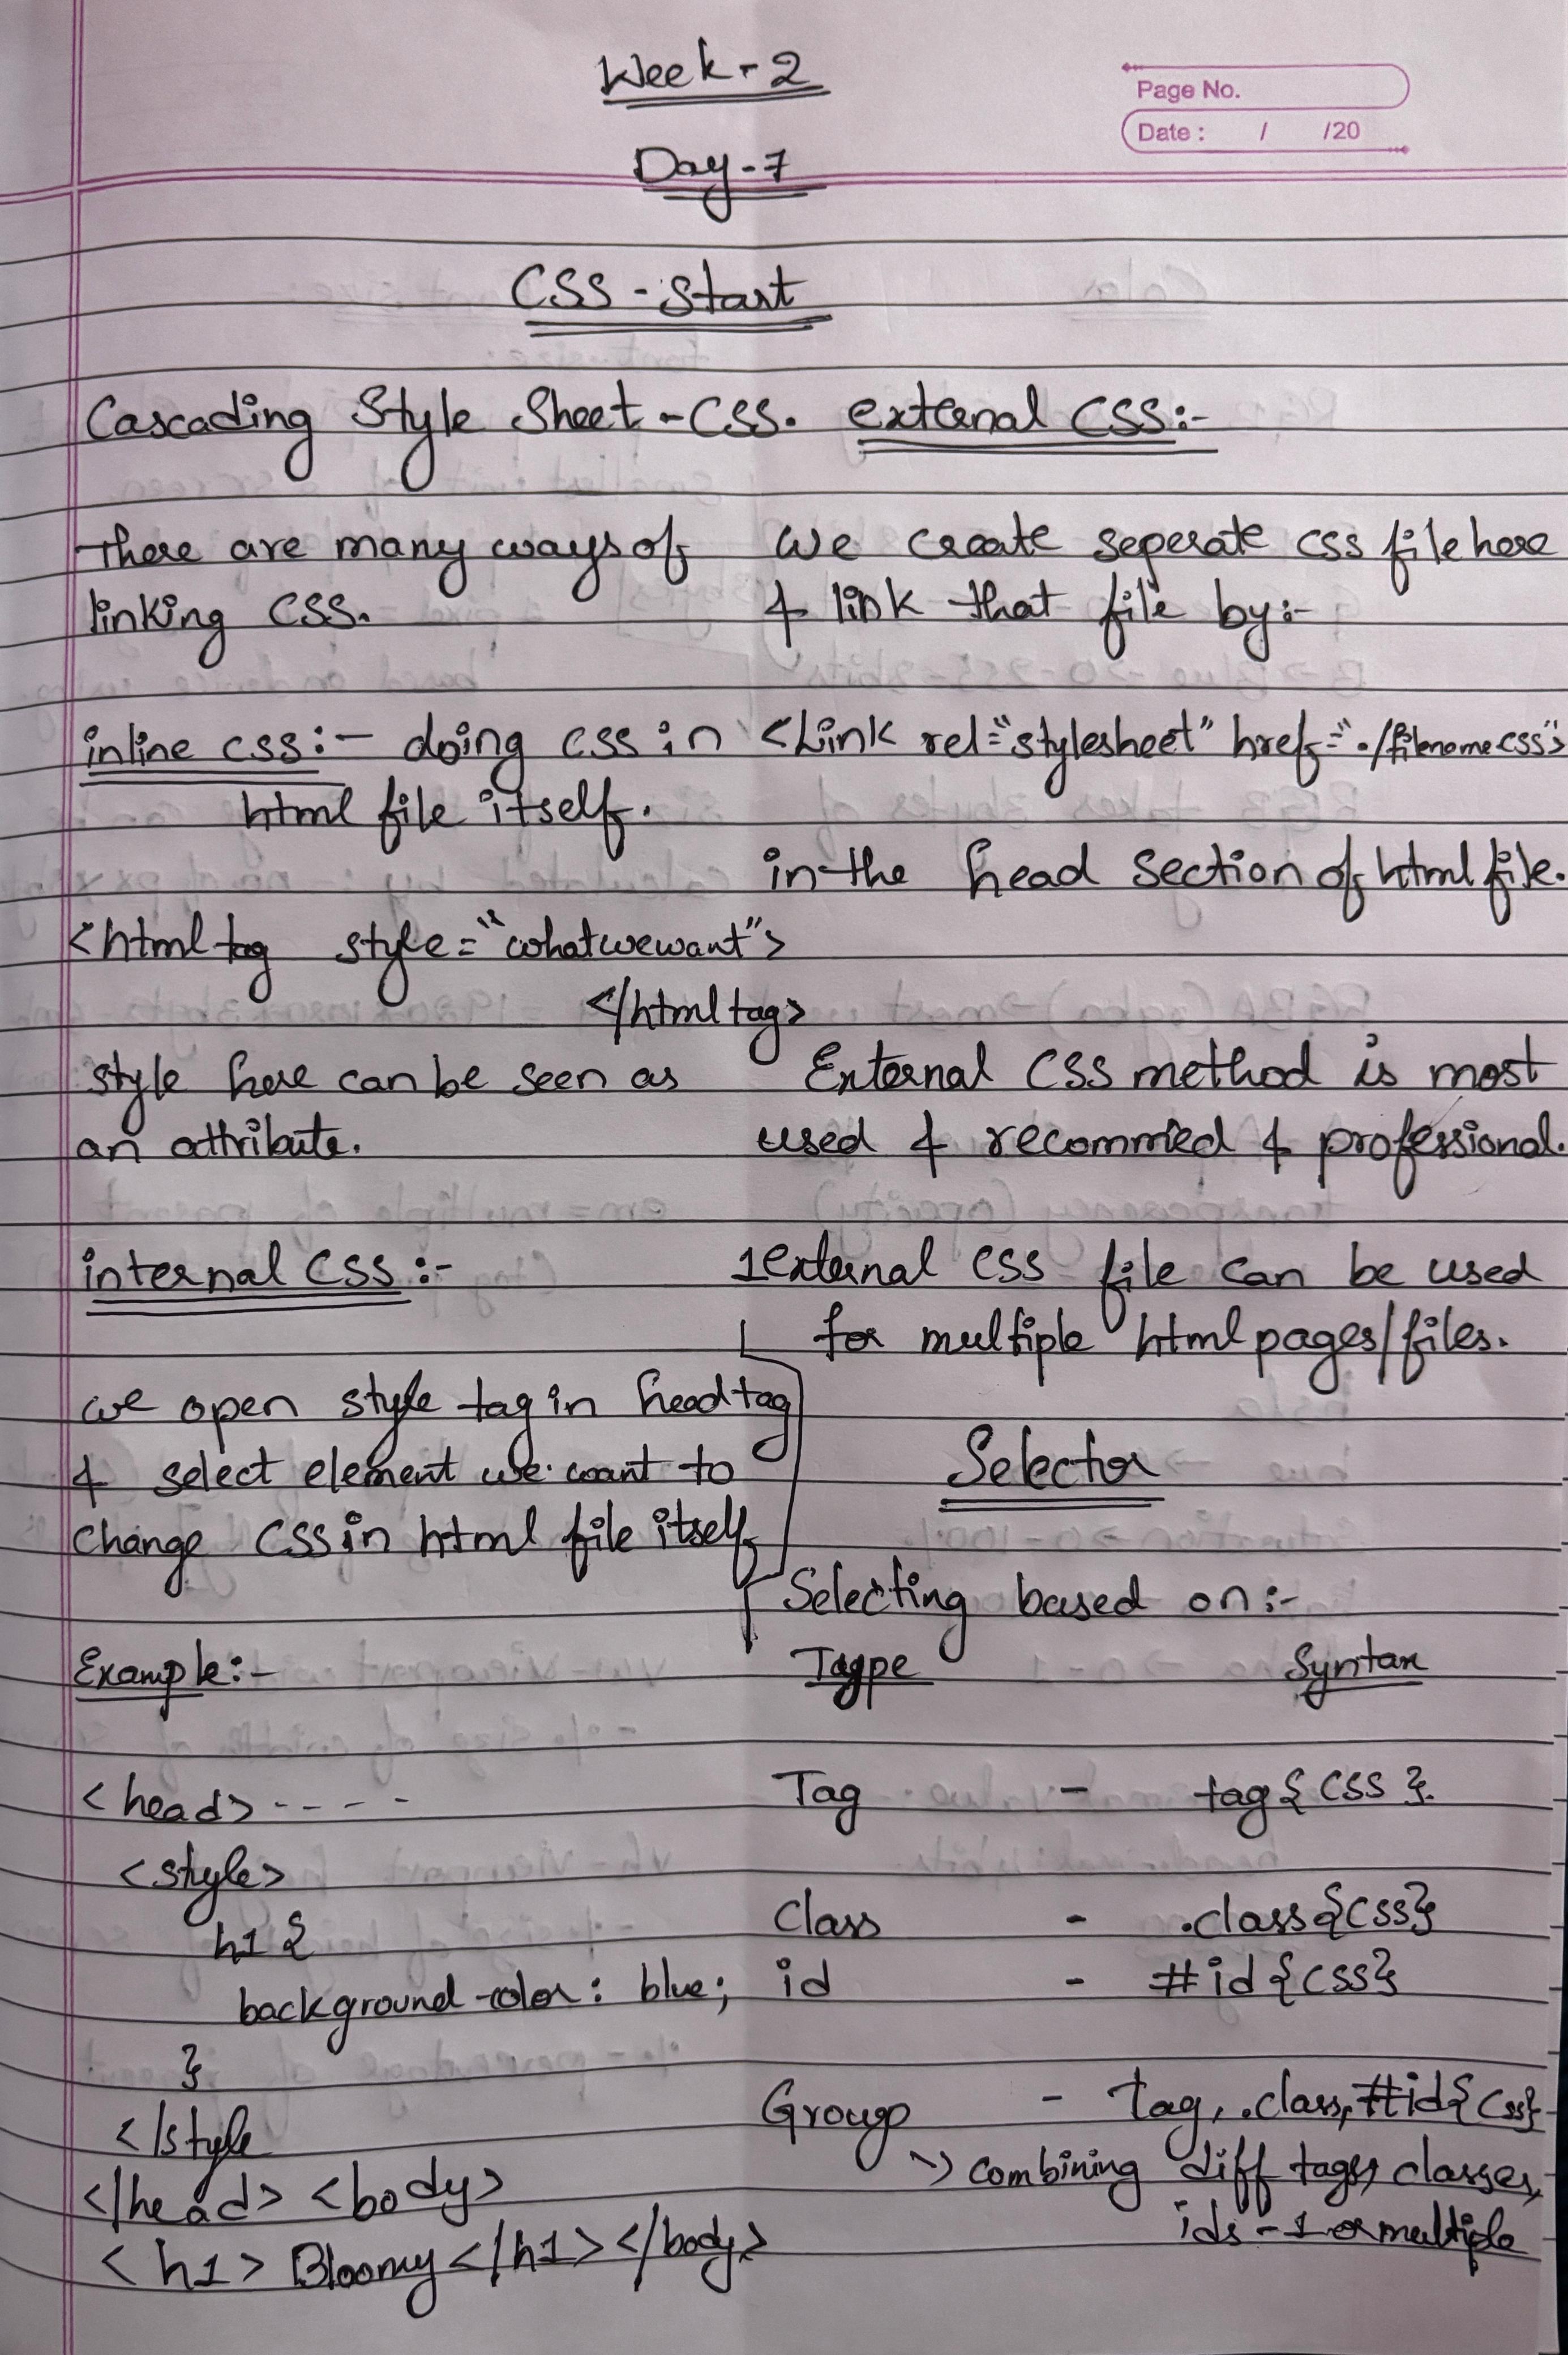 Week - 2
Page No.
Date : / /20
Day - 7
CSS - Start
Cascading Style Sheet - CSS.
There are many ways of
linking CSS.
inline css :- doing css in
html file itself.
<html tag style = "whatwewant">
</html tag>
style here can be seen as
an attribute.
internal CSS :-
we open style tag in head tag
& select element we want to
change CSS in html file itself
Example :-
<head> - - - -
<style>
h1 {
background-color : blue;
}
</style
</head> <body>
<h1> Bloomy </h1> </body>
external CSS :-
We create seperate css file here
& link that file by :-
<Link rel="stylesheet" href="./filename.css">
in the head section of html file.
External CSS method is most
used & recommied & professional.
1 external css file can be used
for multiple html pages/files.
Selector
Selecting based on :-
Syntax
Tag - tag { CSS }.
Class - .class {CSS}
id - #id {CSS}
Group - tag, .class, #id {CSS}
combining diff tags, classes,
ids - 1 or multiple